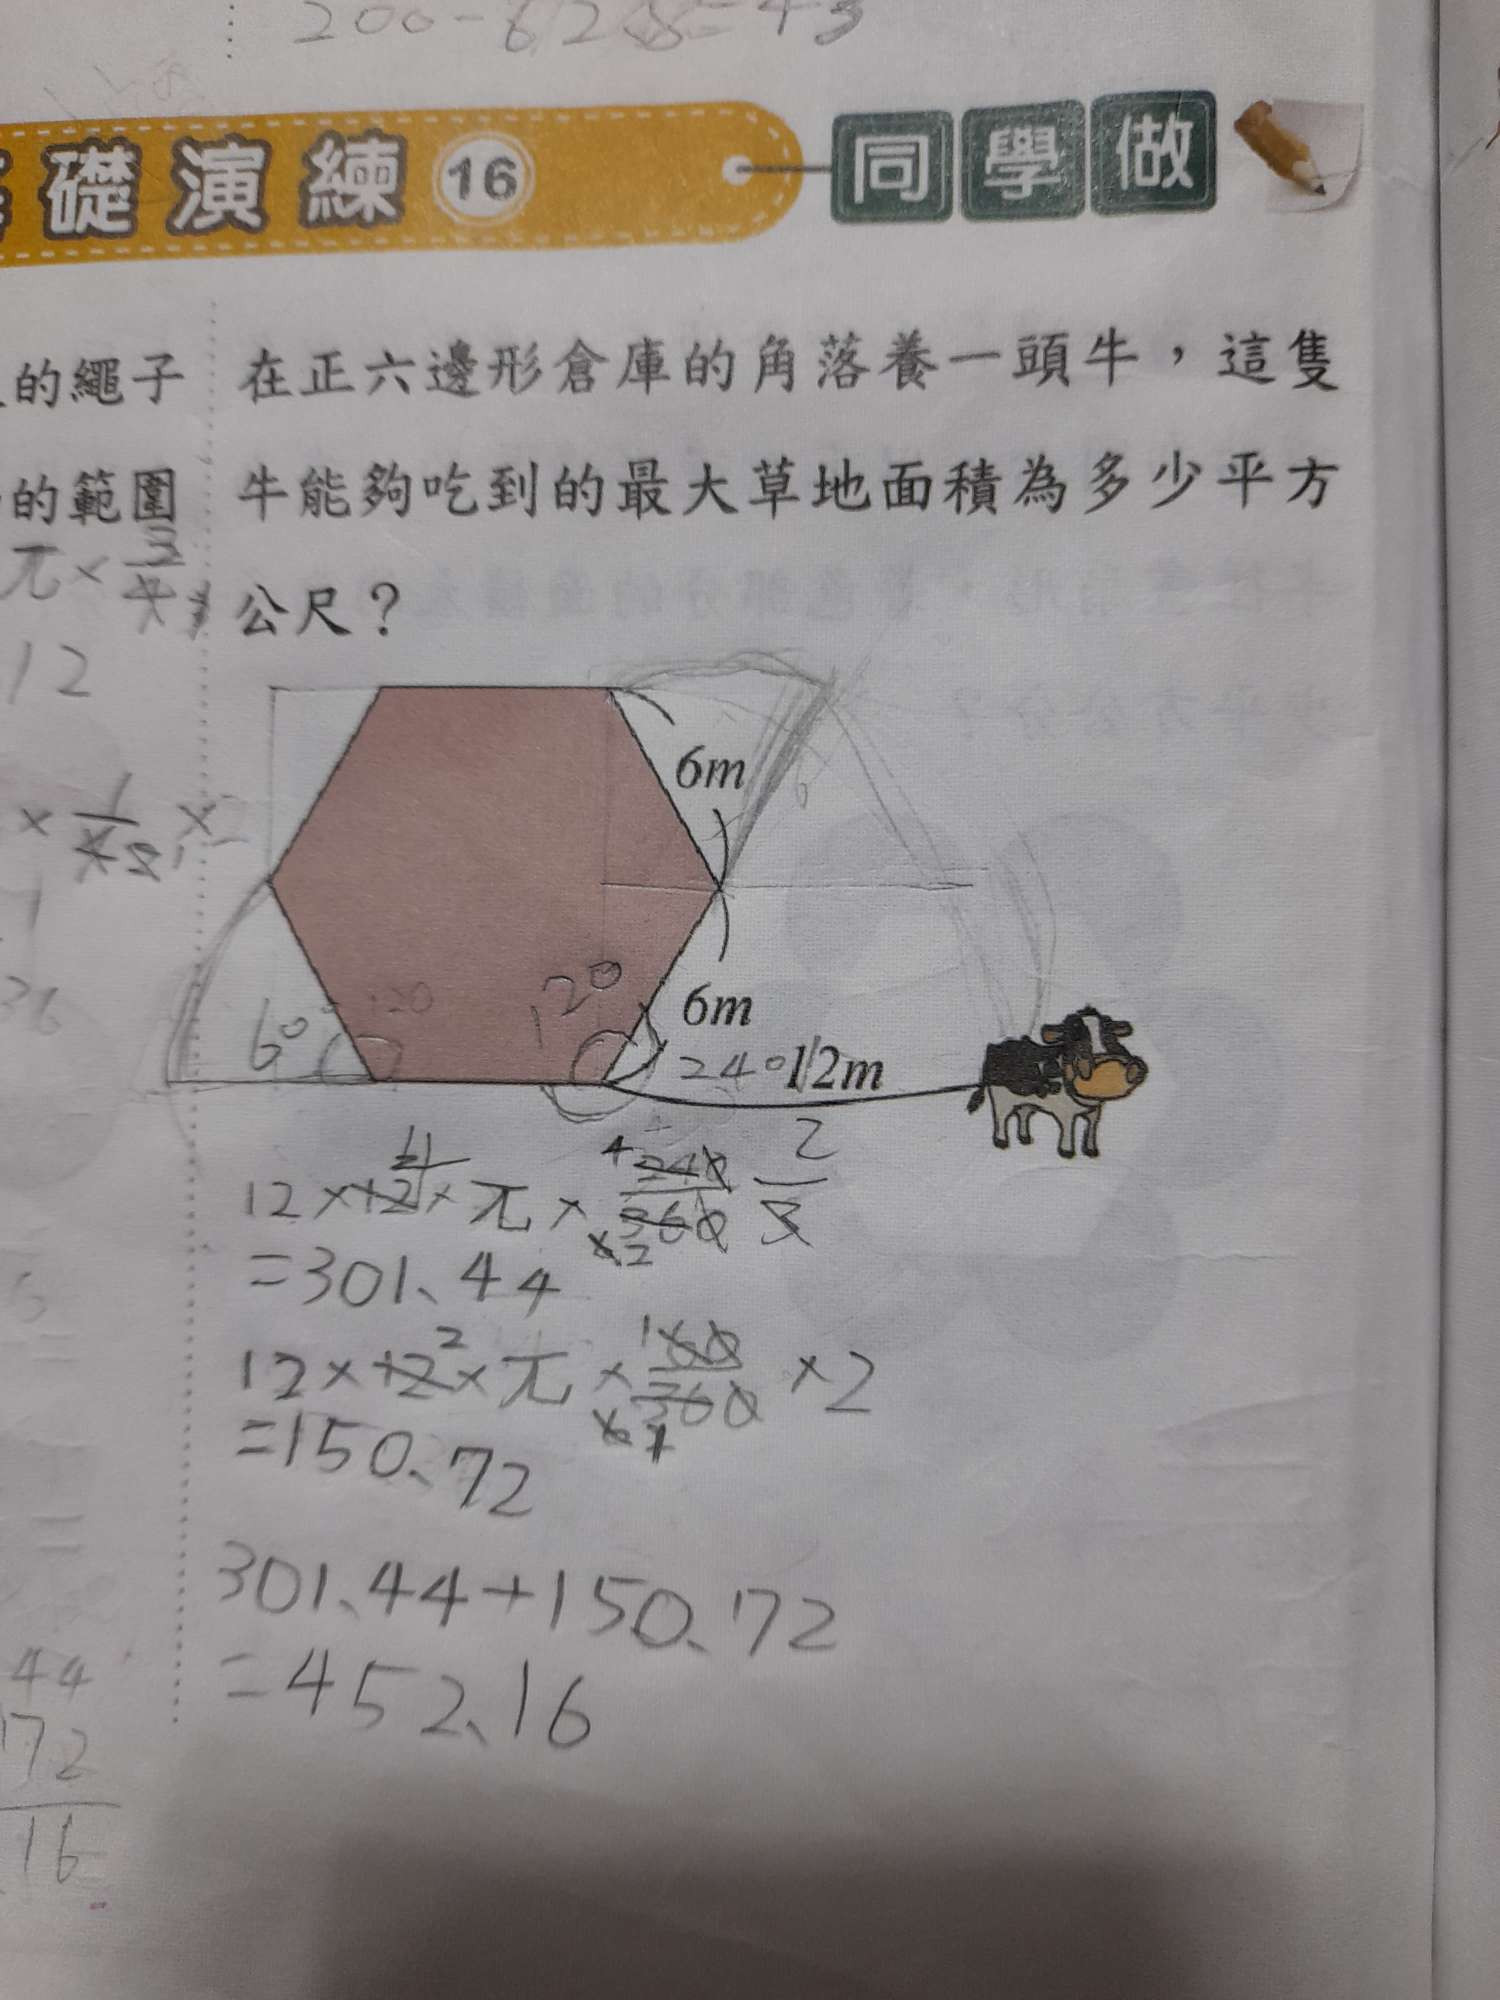 200-62.8=
礎演練 16 同學做
的繩子
的範圍
π×3/4
12
在正六邊形倉庫的角落養一頭牛，這隻
牛能夠吃到的最大草地面積為多少平方
公尺？
6m
120°
120
60
6m
240
12m
12×12×π×240/360 2/3
=301.44
12×12×π×60/360×2
=150.72
301.44+150.72
=452.16
44
72
16